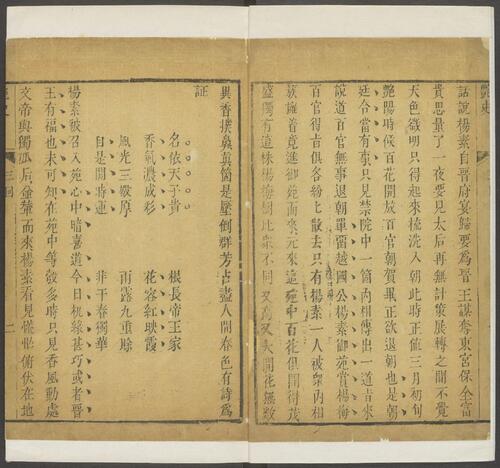 艷史
話說楊素自晉府宴歸要爲晉王謀奪東宮保全富
貴思量了一夜要見太后再無計策展轉之間不覺
天色微明只得起來梳洗入朝此時正值三月初旬
艷陽時候百花開放百官朝賀畢正欲退朝也是朝
廷合當有事只見禁院中一箇內相傳出一道旨來
說道百官無事退朝單留越國公楊素御苑賞楊梅
百官得旨俱各紛紛散去只有楊素一人被衆內相
簇擁着竟進御苑而來元來這苑中百花俱開得茂
盛獨有這株楊梅樹比衆不同又高又大開花無數
異香撲鼻真箇是壓倒群芳占盡人間春色有詩爲
証
名依天子貴 根長帝王家
香氣濃成彩 花容紅映霞
風光三殿厚 雨露九重賒
自是開時運 非干春獨華
楊素被召入苑心中暗喜道今日机緣甚巧或者晉
王有福也未可知在苑中等多時只見香風動處
文帝與獨孤后金輦而來楊素看見慌慌俯伏在地
三回 二